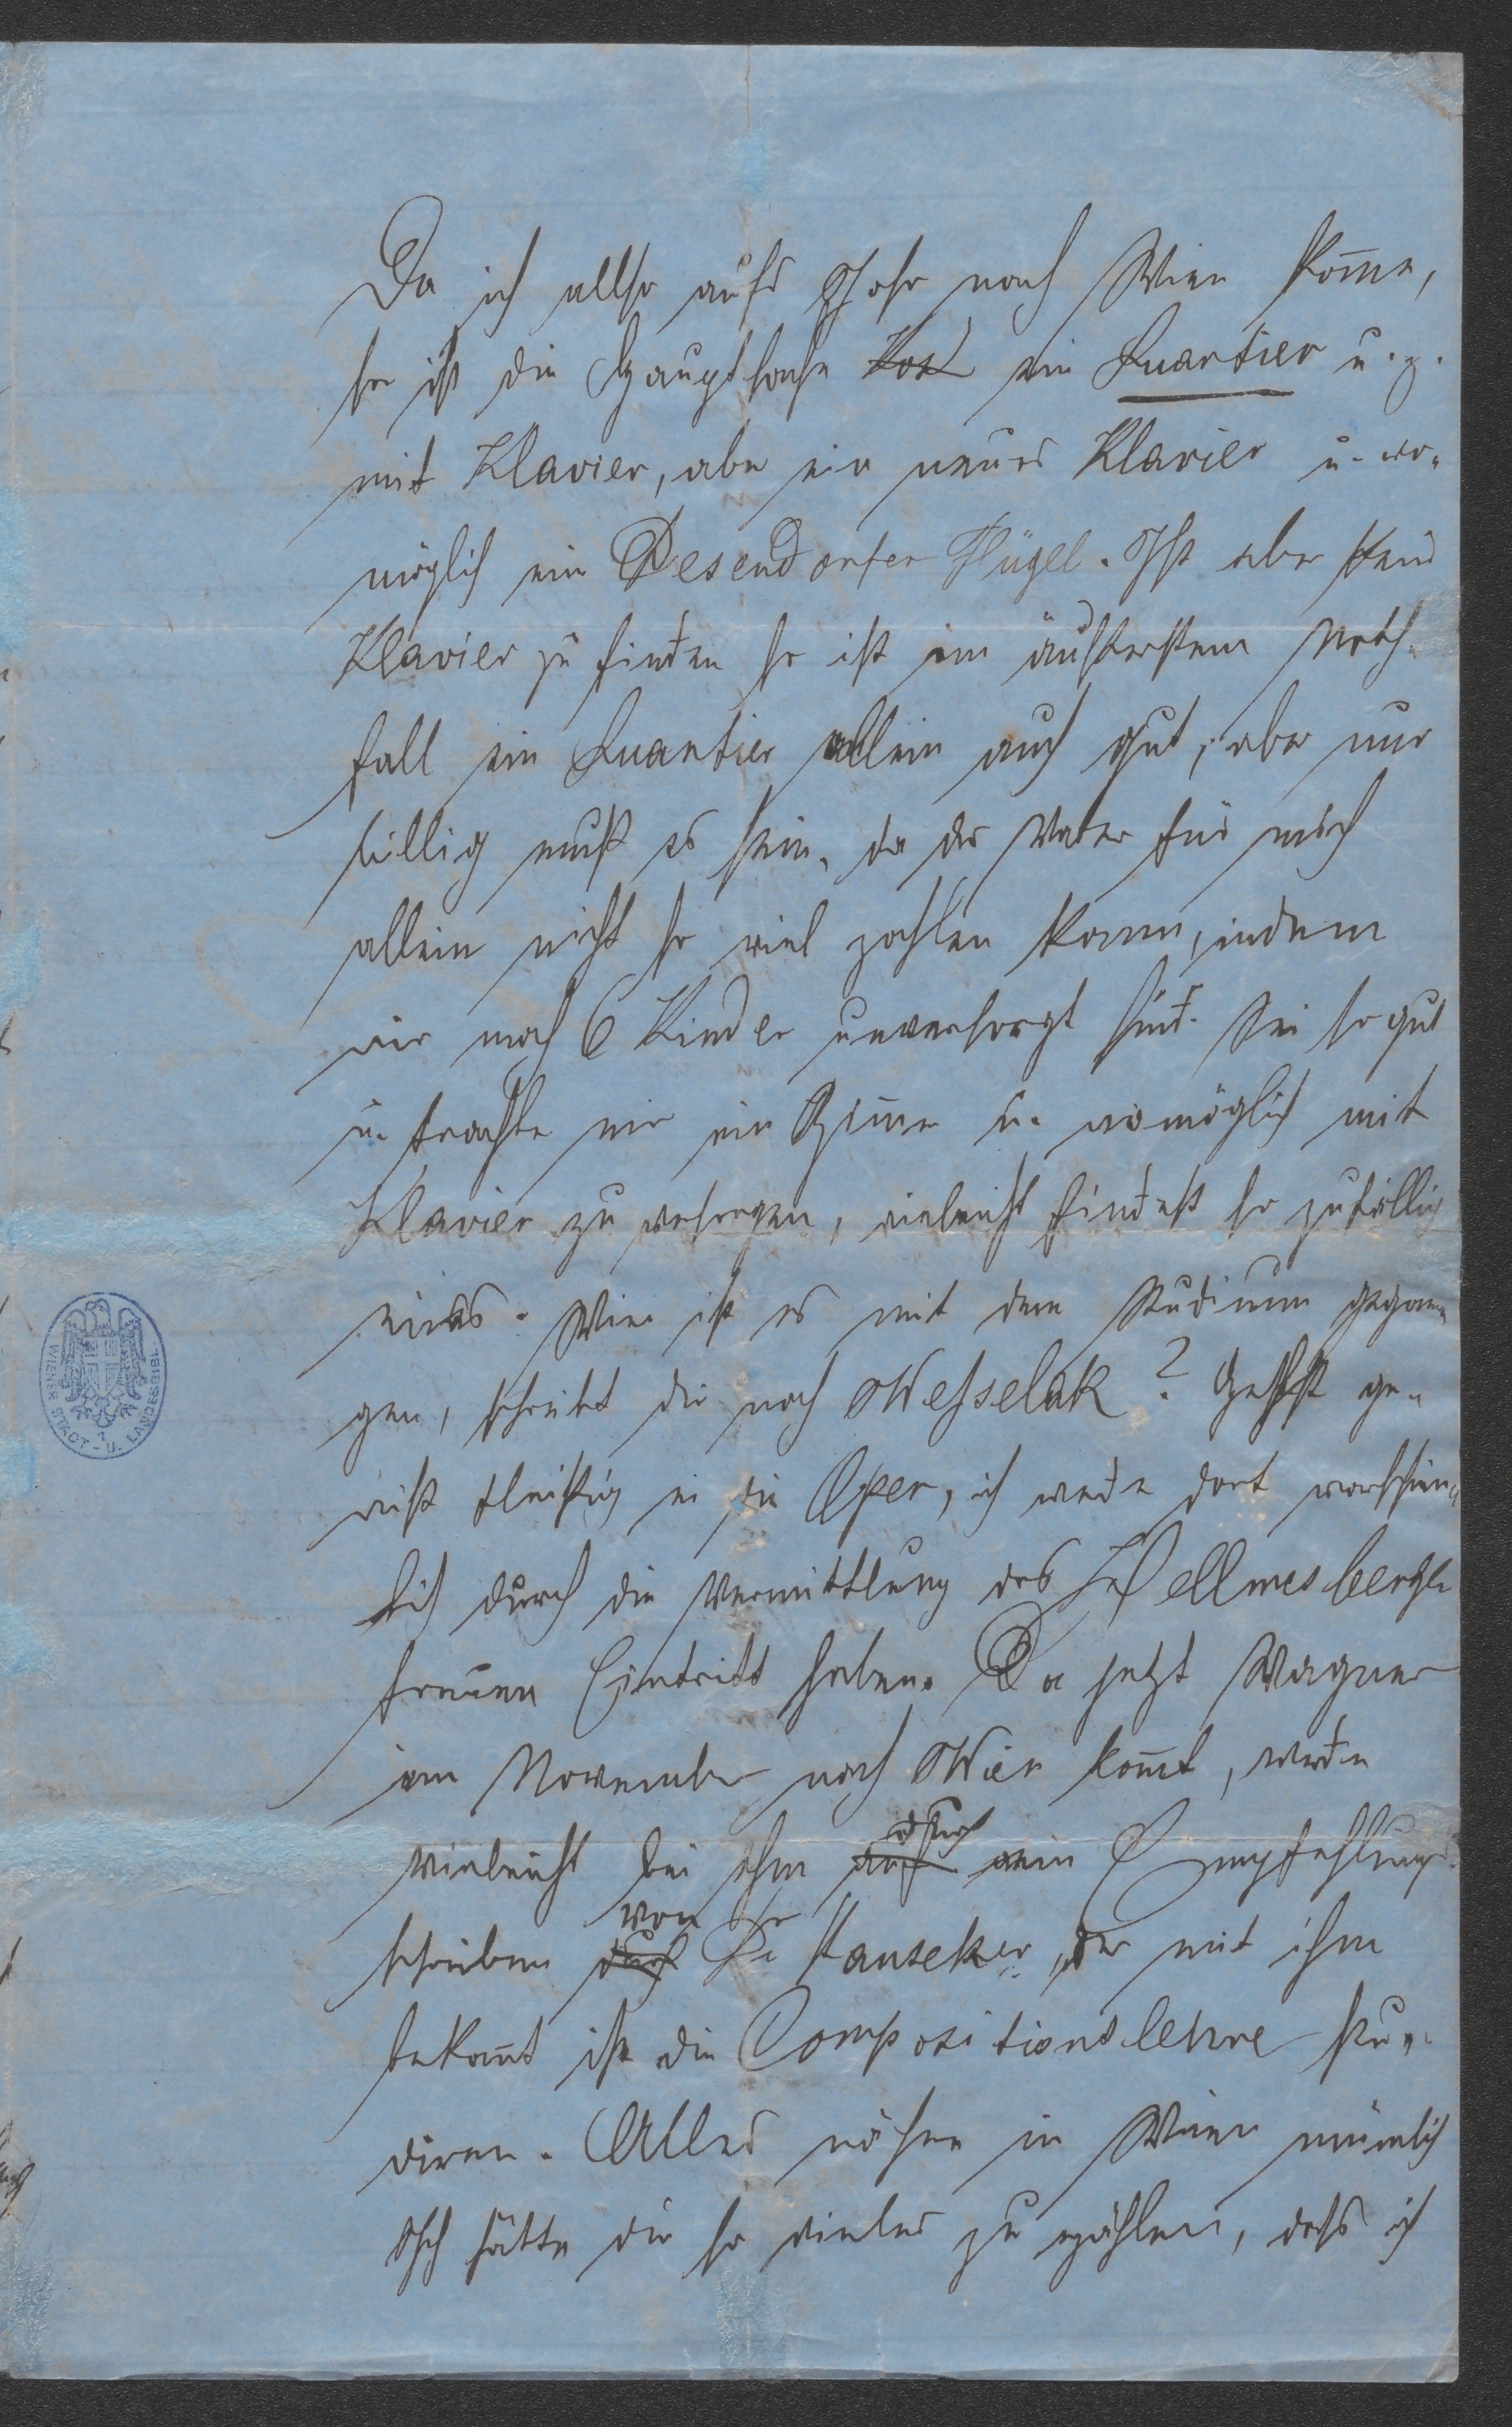 Da ich allso aufs Jahr nach Wien kom̄e,
so ist die Hauptsache Kost ein Quartier u. z.
mit Klavier, aber ein neues Klavier u. wo-
möglich ein Besendorfer Flügel. Ist aber kein
Klavier zu finden so ist im äußersten Noth-
fall ein Quartier allein auch gut, aber nur
billig muß es sein, da der Vater für mich
allein nicht so viel zahlen kann, indem
wir noch 6 Kinder unversorgt sind. Sei so gut
u. trachte mir ein Zim̄er u. womöglich mit
Klavier zu versorgen, vieleicht findest so zufällig
eines. Wie ist es mit dem Studium gegan-
gen, schreibt dir noch Wesselak? Gehst ge-
wiß fleißig in die Oper, ich werde dort warschein-
lich durch die Vermittlung des Hellmesberger
freien Eintritt haben. Da jetzt Wagner
im November nach Wien kom̄t, werde
vieleicht bei ihm auf durch ein Empfehlung
schreiben durch von Dr Hauseker, der mit ihm
bekan̄t ist die Compositionslehre stu-
diren. Alles nähere in Wien mündlich
Ich hätte dir so vieles zu erzählen, daß ich
WIENER STADT- U. LANDESBIBL.